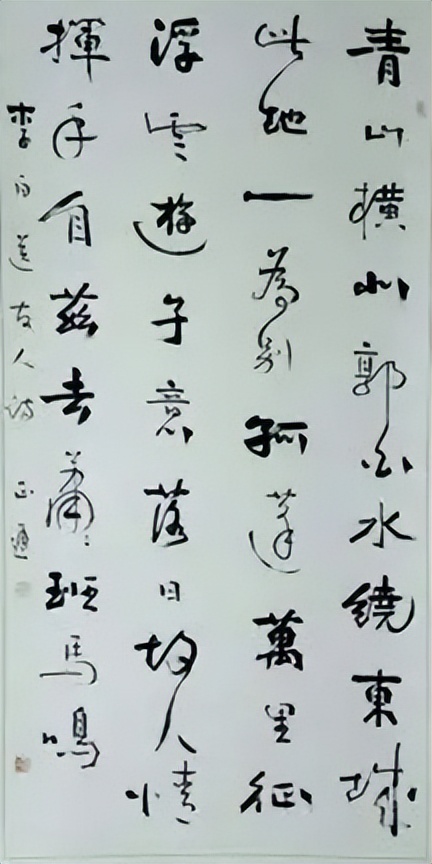 青山橫北郭白水繞東城
此地一為別孤蓬萬里征
浮雲遊子意落日故人情
揮手自茲去蕭蕭班馬鳴
李白送友人詩 正通